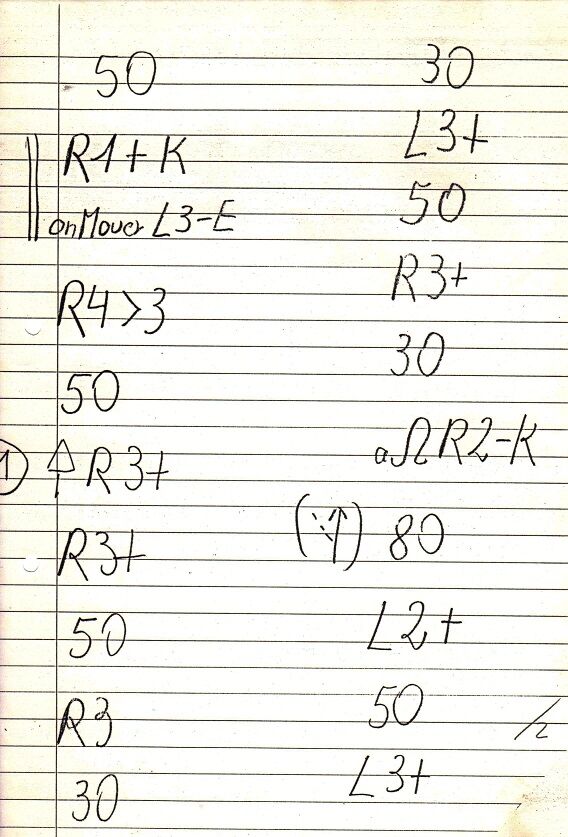 50
R1+K
onMouer L3-E
R4>3
50
1 R3+
R3+
50
R3
30
30
L3+
50
R3+
30
aΩR2-K
80
L2+
50
L3+
/2